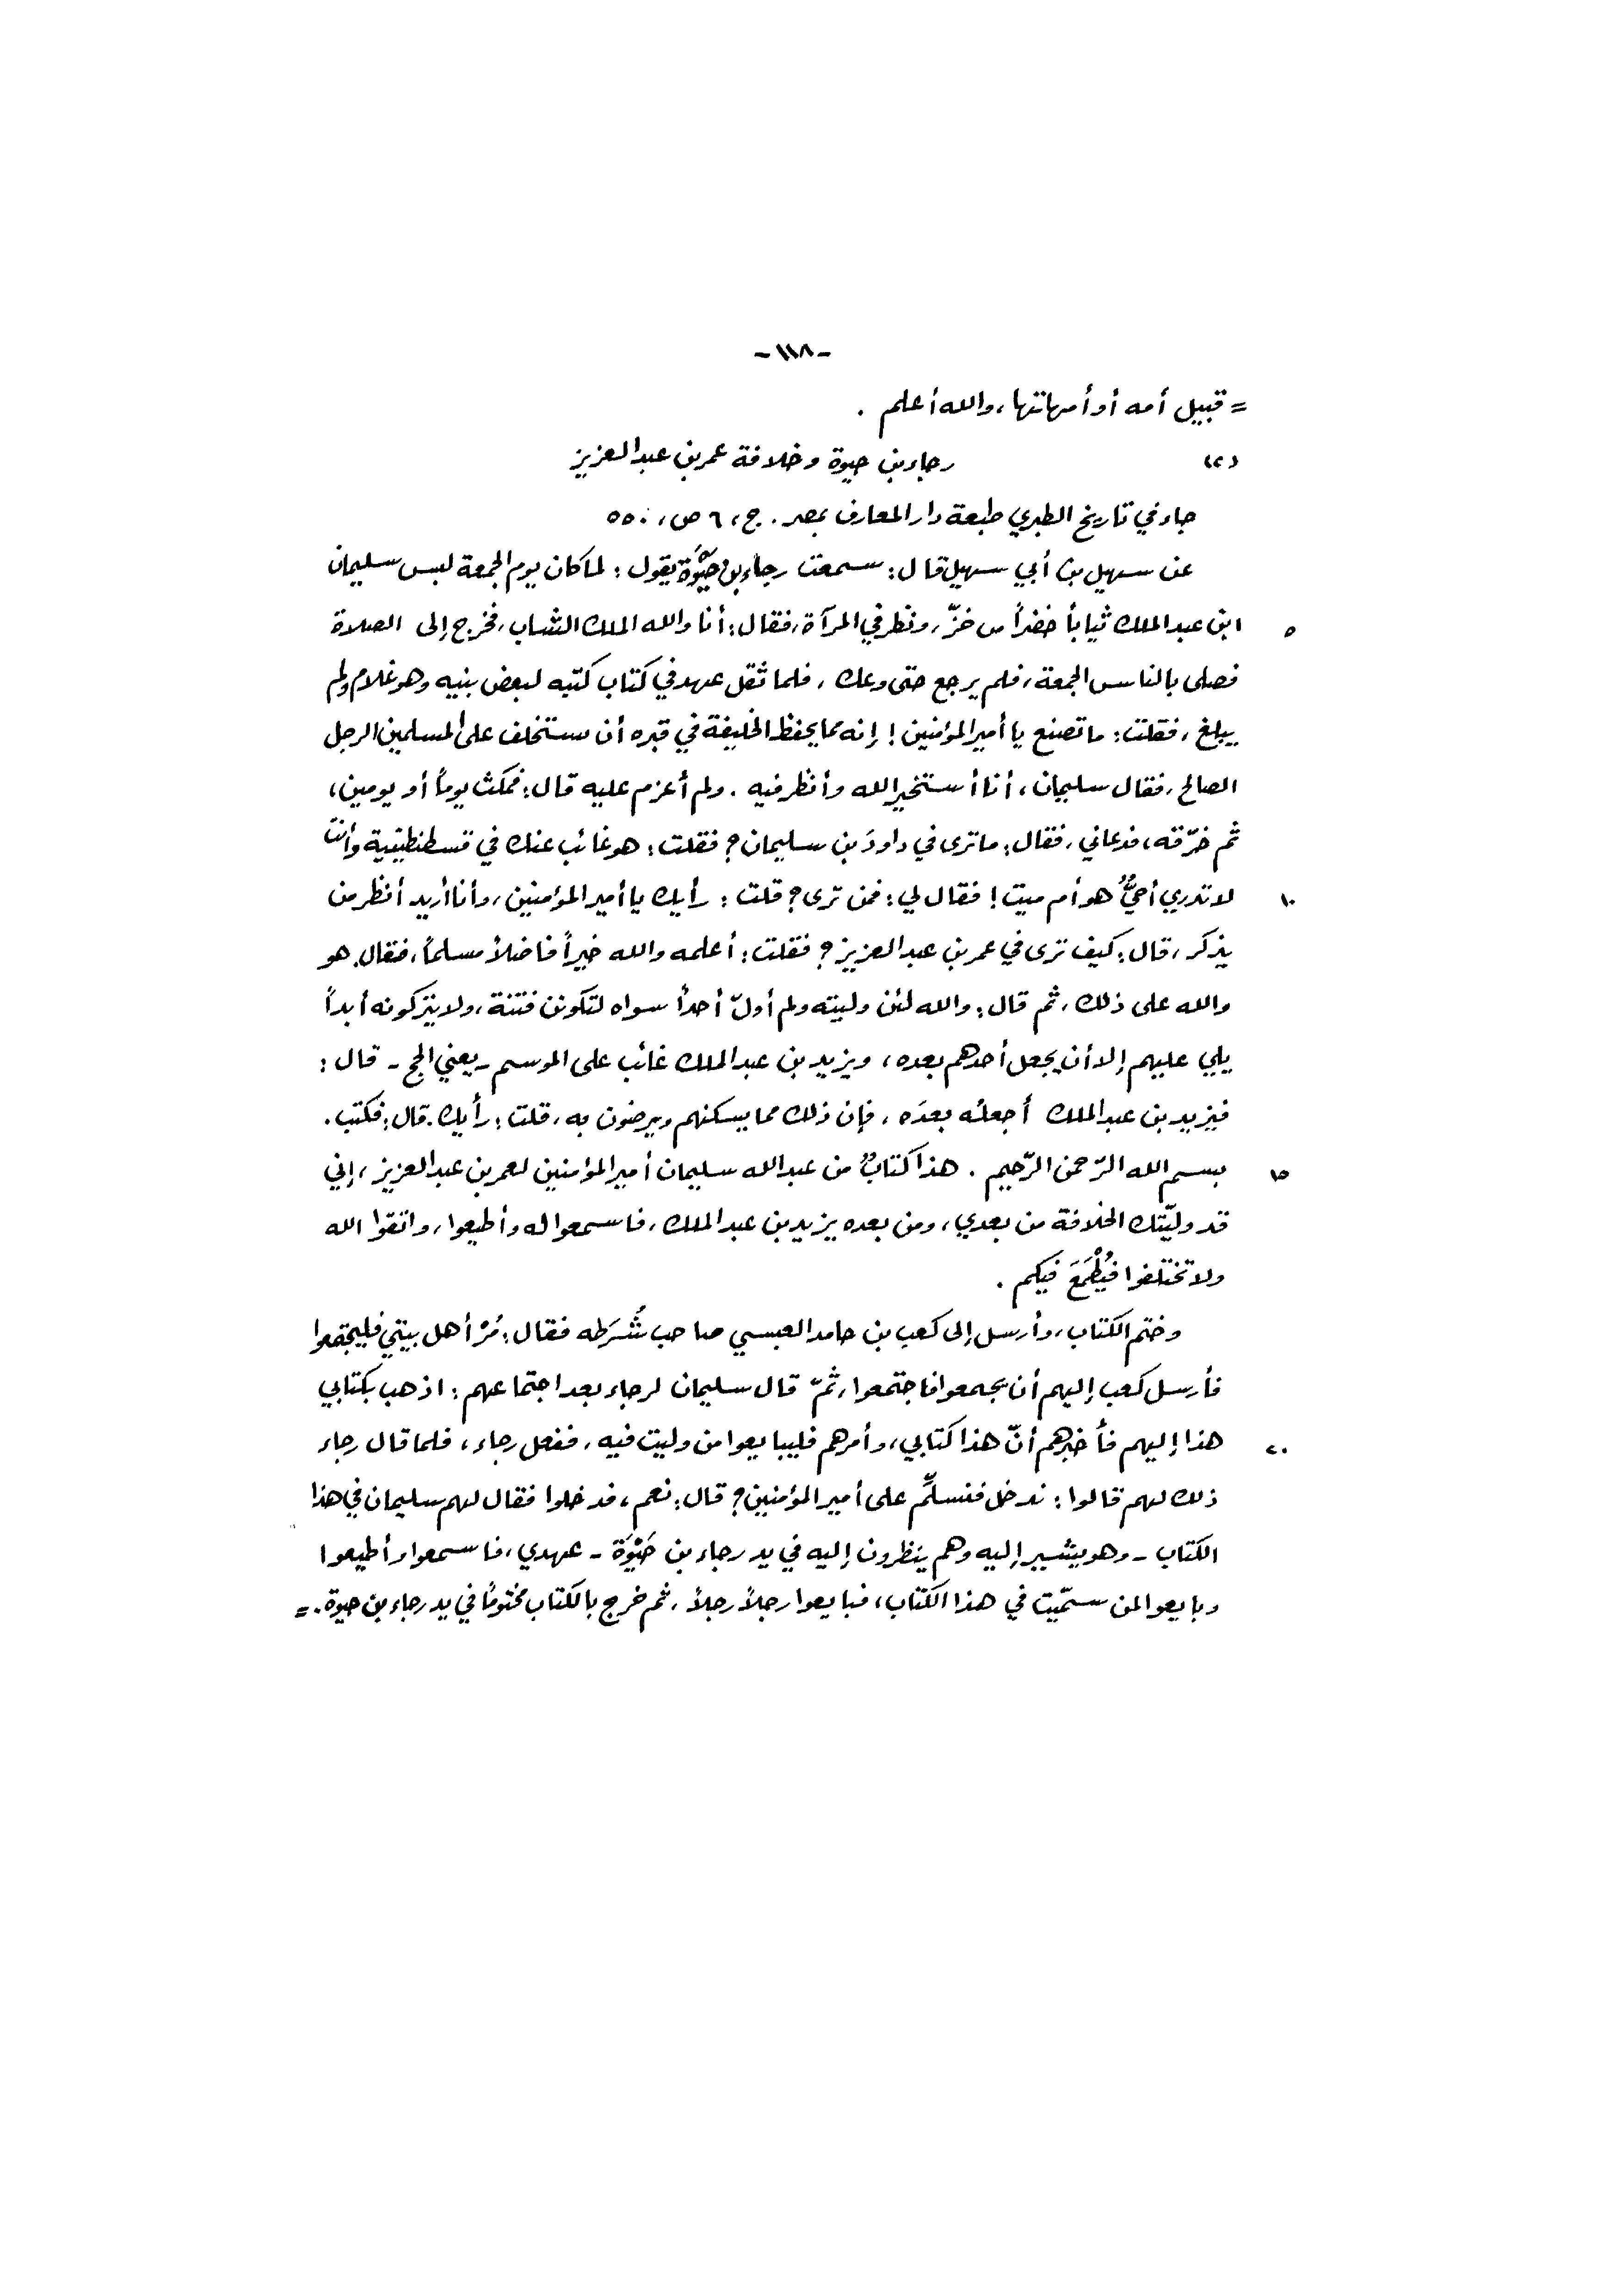 -١١٨-
= قبيل أمه أو أمهاتها، والله أعلم .
(٢) رجاء بن حيوة وخلافة عمر بن عبد العزيز
جاء في تاريخ الطبري طبعة دار المعارف بمصر . ج، ٦ ص، ٥٥٠
عن سهيل بن أبي سهيل قال: سمعت رجاء بن حَيْوَة يقول: لما كان يوم الجمعة لبس سليمان
٥ ابن عبد الملك ثياباً خضراً من خزّ، ونظر في المرآة، فقال: أنا والله الملك الشاب، فخرج إلى الصلاة
فصلى بالناس الجمعة، فلم يرجع حتى وعك، فلما ثقل عهد في كتاب كتبه لبعض بنيه وهو غلام ولم
يبلغ، فقلت: ما تصنع يا أمير المؤمنين! إنه مما يحفظ الخليفة في قبره أن يستخلف على المسلمين الرجل
الصالح، فقال سليمان، أنا أستخير الله وأنظر فيه . ولم أعزم عليه قال: فمكث يوماً أو يومين،
ثم خرّقه، فدعاني، فقال: ما ترى في داودَ بن سليمان؟ فقلت: هو غائب عنك في قسطنطينية وأنت
١٠ لا تدري أحيٌّ هو أم ميت! فقال لي: فمن ترى؟ قلت: رأيك يا أمير المؤمنين، وأنا أريد أنظر من
يذكر، قال: كيف ترى في عمر بن عبد العزيز؟ فقلت: أعلمه والله خيراً فاضلاً مسلماً، فقال. هو
والله على ذلك، ثم قال: والله لئن وليته ولم أولّ أحداً سواه لتكونن فتنة، ولا يتركونه أبداً
يلي عليهم إلا أن يجعل أحدهم بعده، ويزيد بن عبد الملك غائب على الموسم - يعني الحج - قال:
فيزيد بن عبد الملك أجعلُه بعدَه، فإن ذلك مما يسكنهم ويرضون به، قلت: رأيك. قال: فكتب.
١٥ بسم الله الرّحمن الرّحيم . هذا كتابٌ من عبد الله سليمان أمير المؤمنين لعمر بن عبد العزيز، إني
قد وليّتك الخلافة من بعدي، ومن بعده يزيد بن عبد الملك، فاسمعوا له وأطيعوا، واتقوا الله
ولا تختلفوا فيُطْمَعَ فيكم .
وختم الكتاب، وأرسل إلى كعب بن حامد العبسي صاحب شُرَطه فقال: مُرْ أهل بيتي فليجتمعوا
فأرسل كعب إليهم أن يجمعوا فاجتمعوا، ثمّ قال سليمان لرجاء بعد اجتماعهم: اذهب بكتابي
٢٠ هذا إليهم فأخبرهم أنّ هذا كتابي، وأمرهم فليبايعوا من وليت فيه، ففعل رجاء، فلما قال رجاء
ذلك لهم قالوا: ندخل فنسلّم على أمير المؤمنين؟ قال: نعم، فدخلوا فقال لهم سليمان في هذا
الكتاب - وهو يشير إليه وهم ينظرون إليه في يد رجاء بن حَيْوَة - عهدي، فاسمعوا وأطيعوا
وبايعوا لمن سمّيت في هذا الكتاب، فبايعوا رجلاً رجلاً، ثم خرج بالكتاب مختوماً في يد رجاء بن حيوة. =